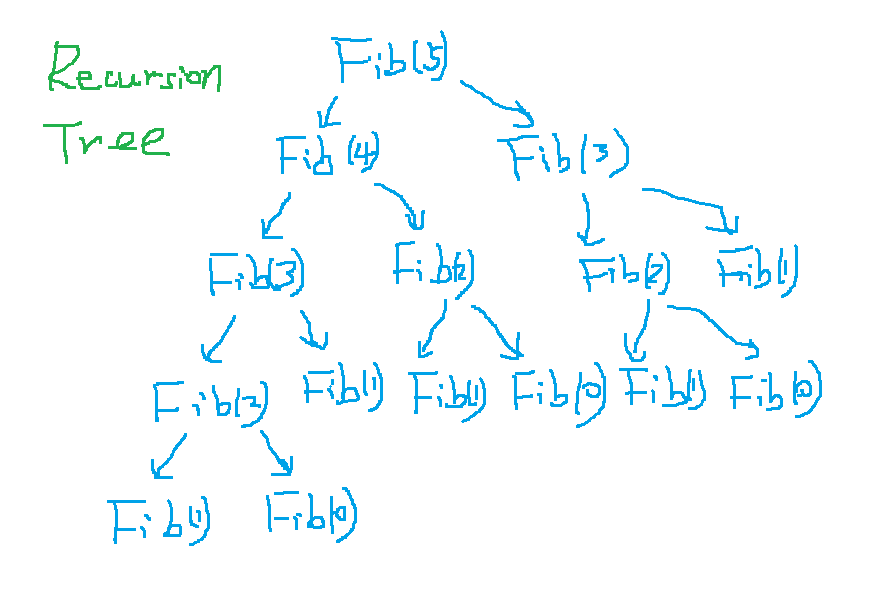 Recursion
Tree
Fib(5)
Fib(4) Fib(3)
Fib(3) Fib(2) Fib(2) Fib(1)
Fib(2) Fib(1) Fib(1) Fib(0) Fib(1) Fib(0)
Fib(1) Fib(0)